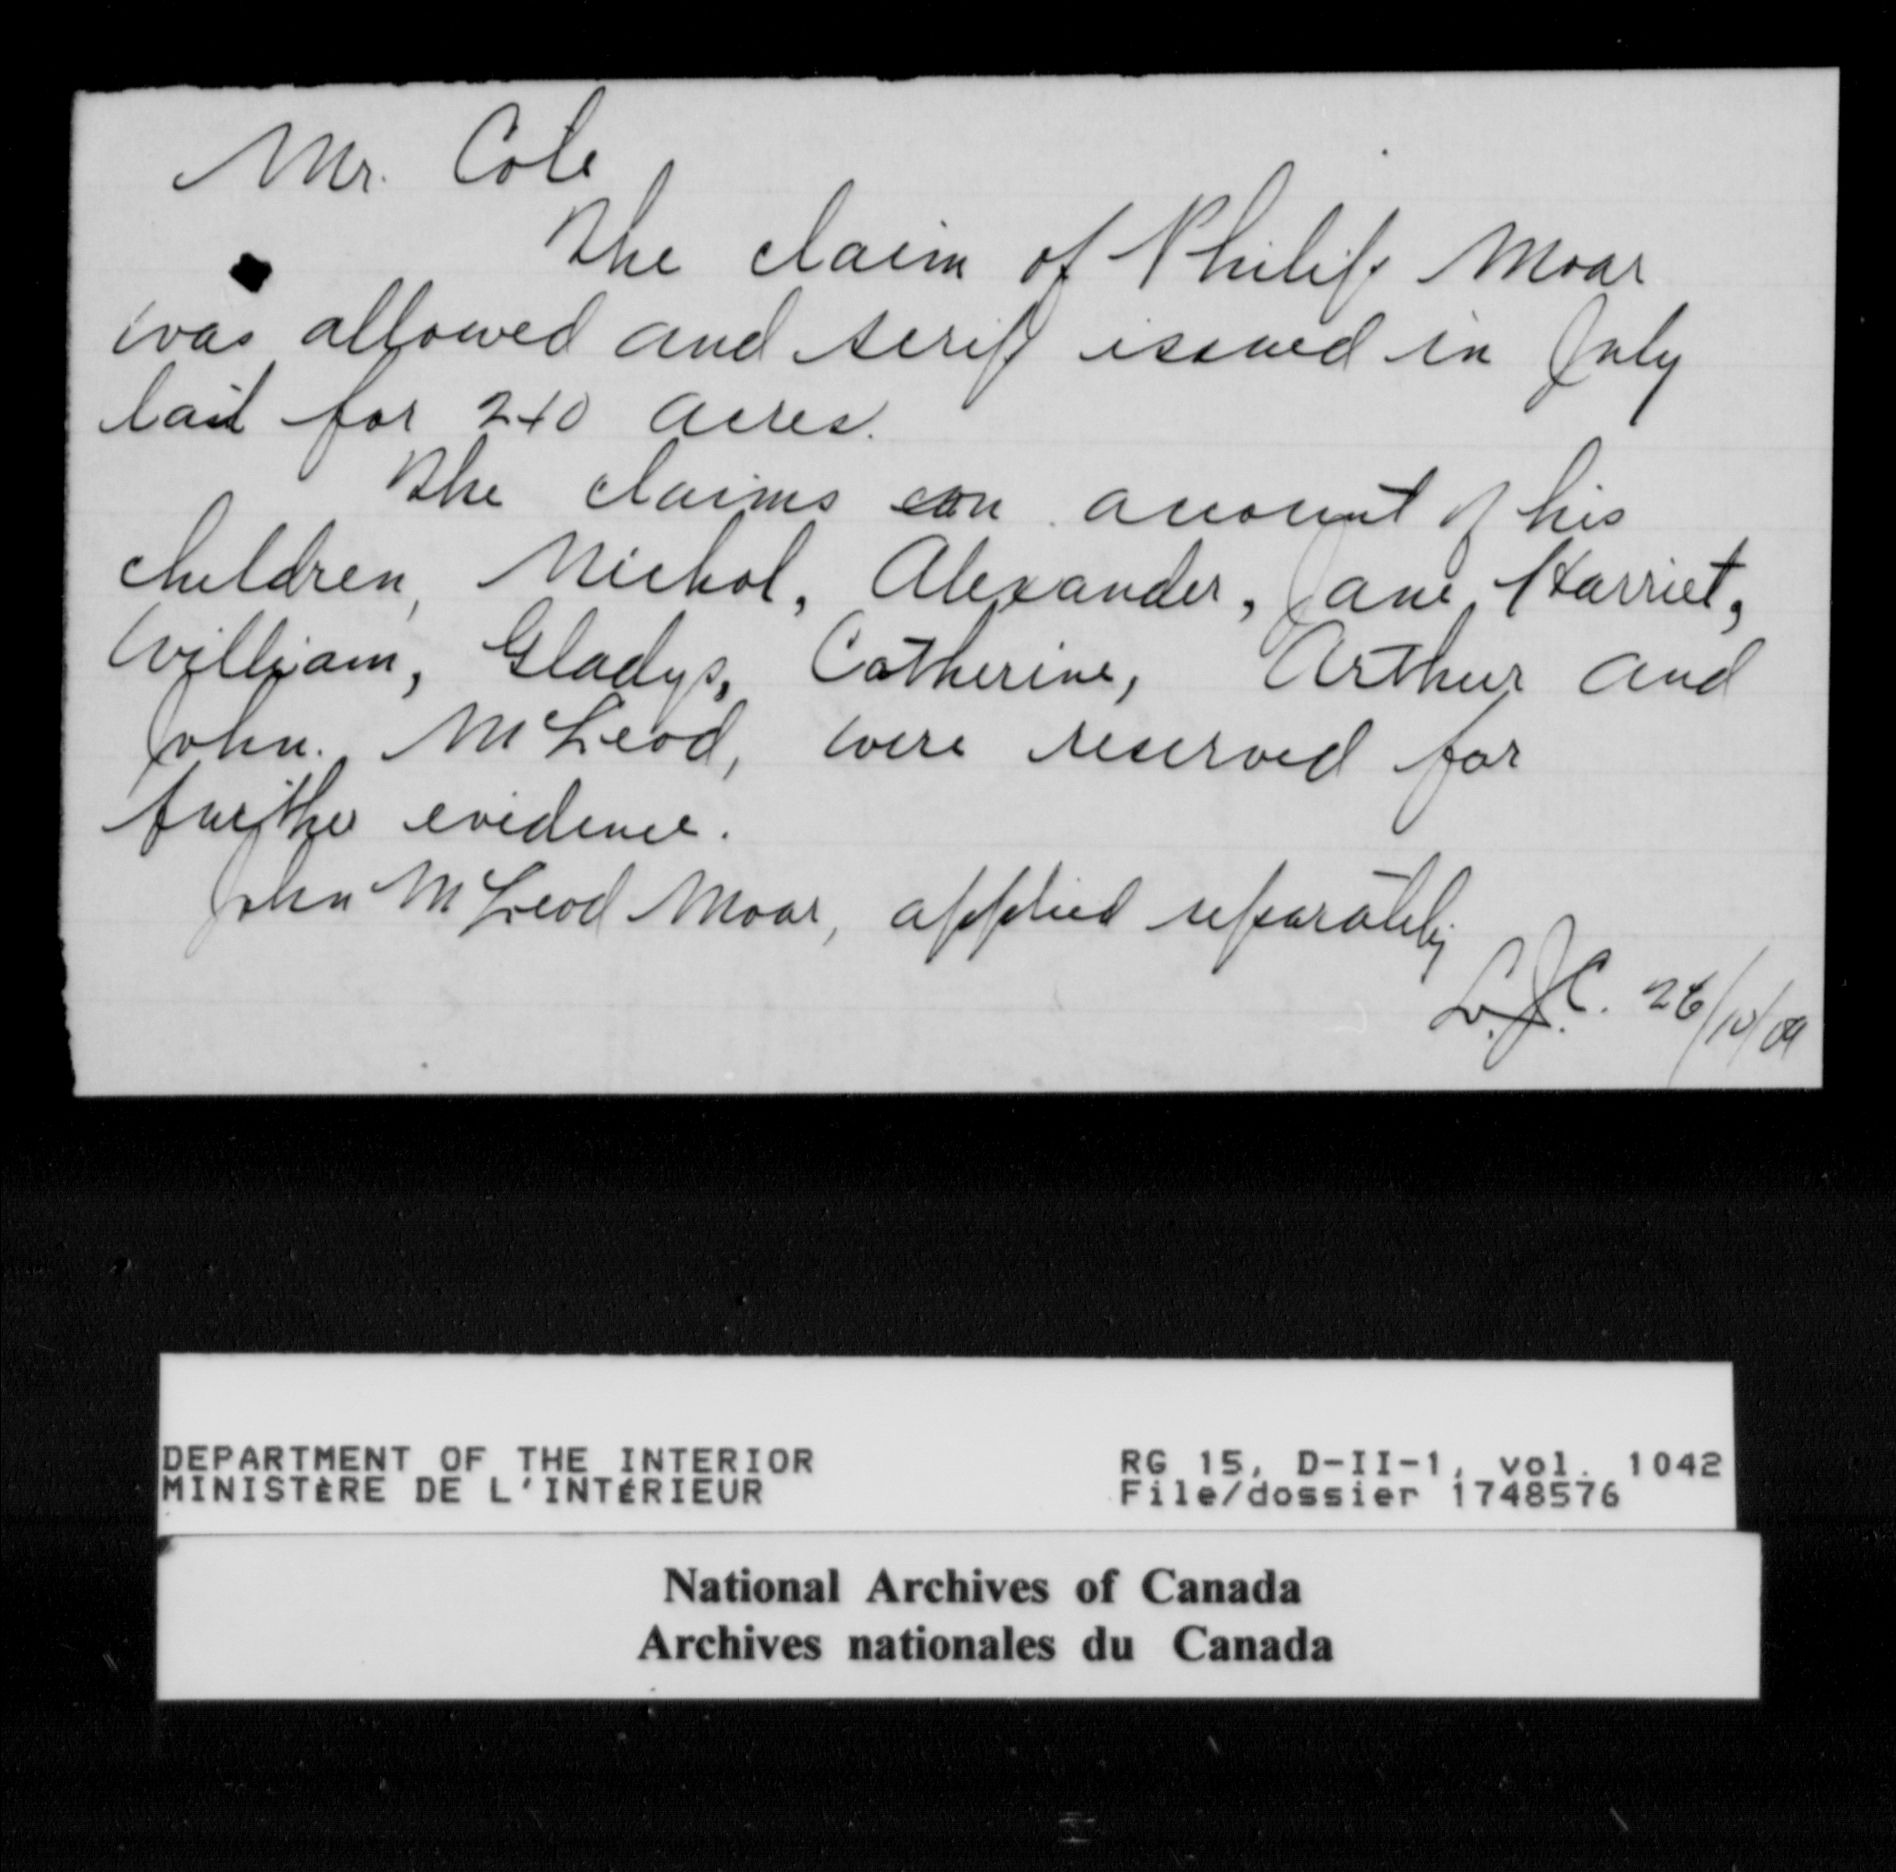 Mr. Cole
The claim of Philip Moar
was allowed and scrip issued in July
last for 240 acres.
The claims on account of his
children, Nichol, Alexander, Jane, Harriet,
William, Gladys, Catherine, Arthur and
John McLeod, were reserved for
further evidence.
John McLeod Moar, applied separately
L.J.C. 26/10/09
DEPARTMENT OF THE INTERIOR
MINISTÈRE DE L'INTÉRIEUR
RG 15, D-II-1, vol. 1042
File/dossier 1748576
National Archives of Canada
Archives nationales du Canada